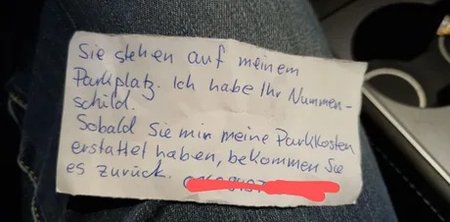 Sie stehen auf meinem
Parkplatz. Ich habe Ihr Nummern-
schild.
Sobald Sie mir meine Parkkosten
erstattet haben, bekommen Sie
es zurück.